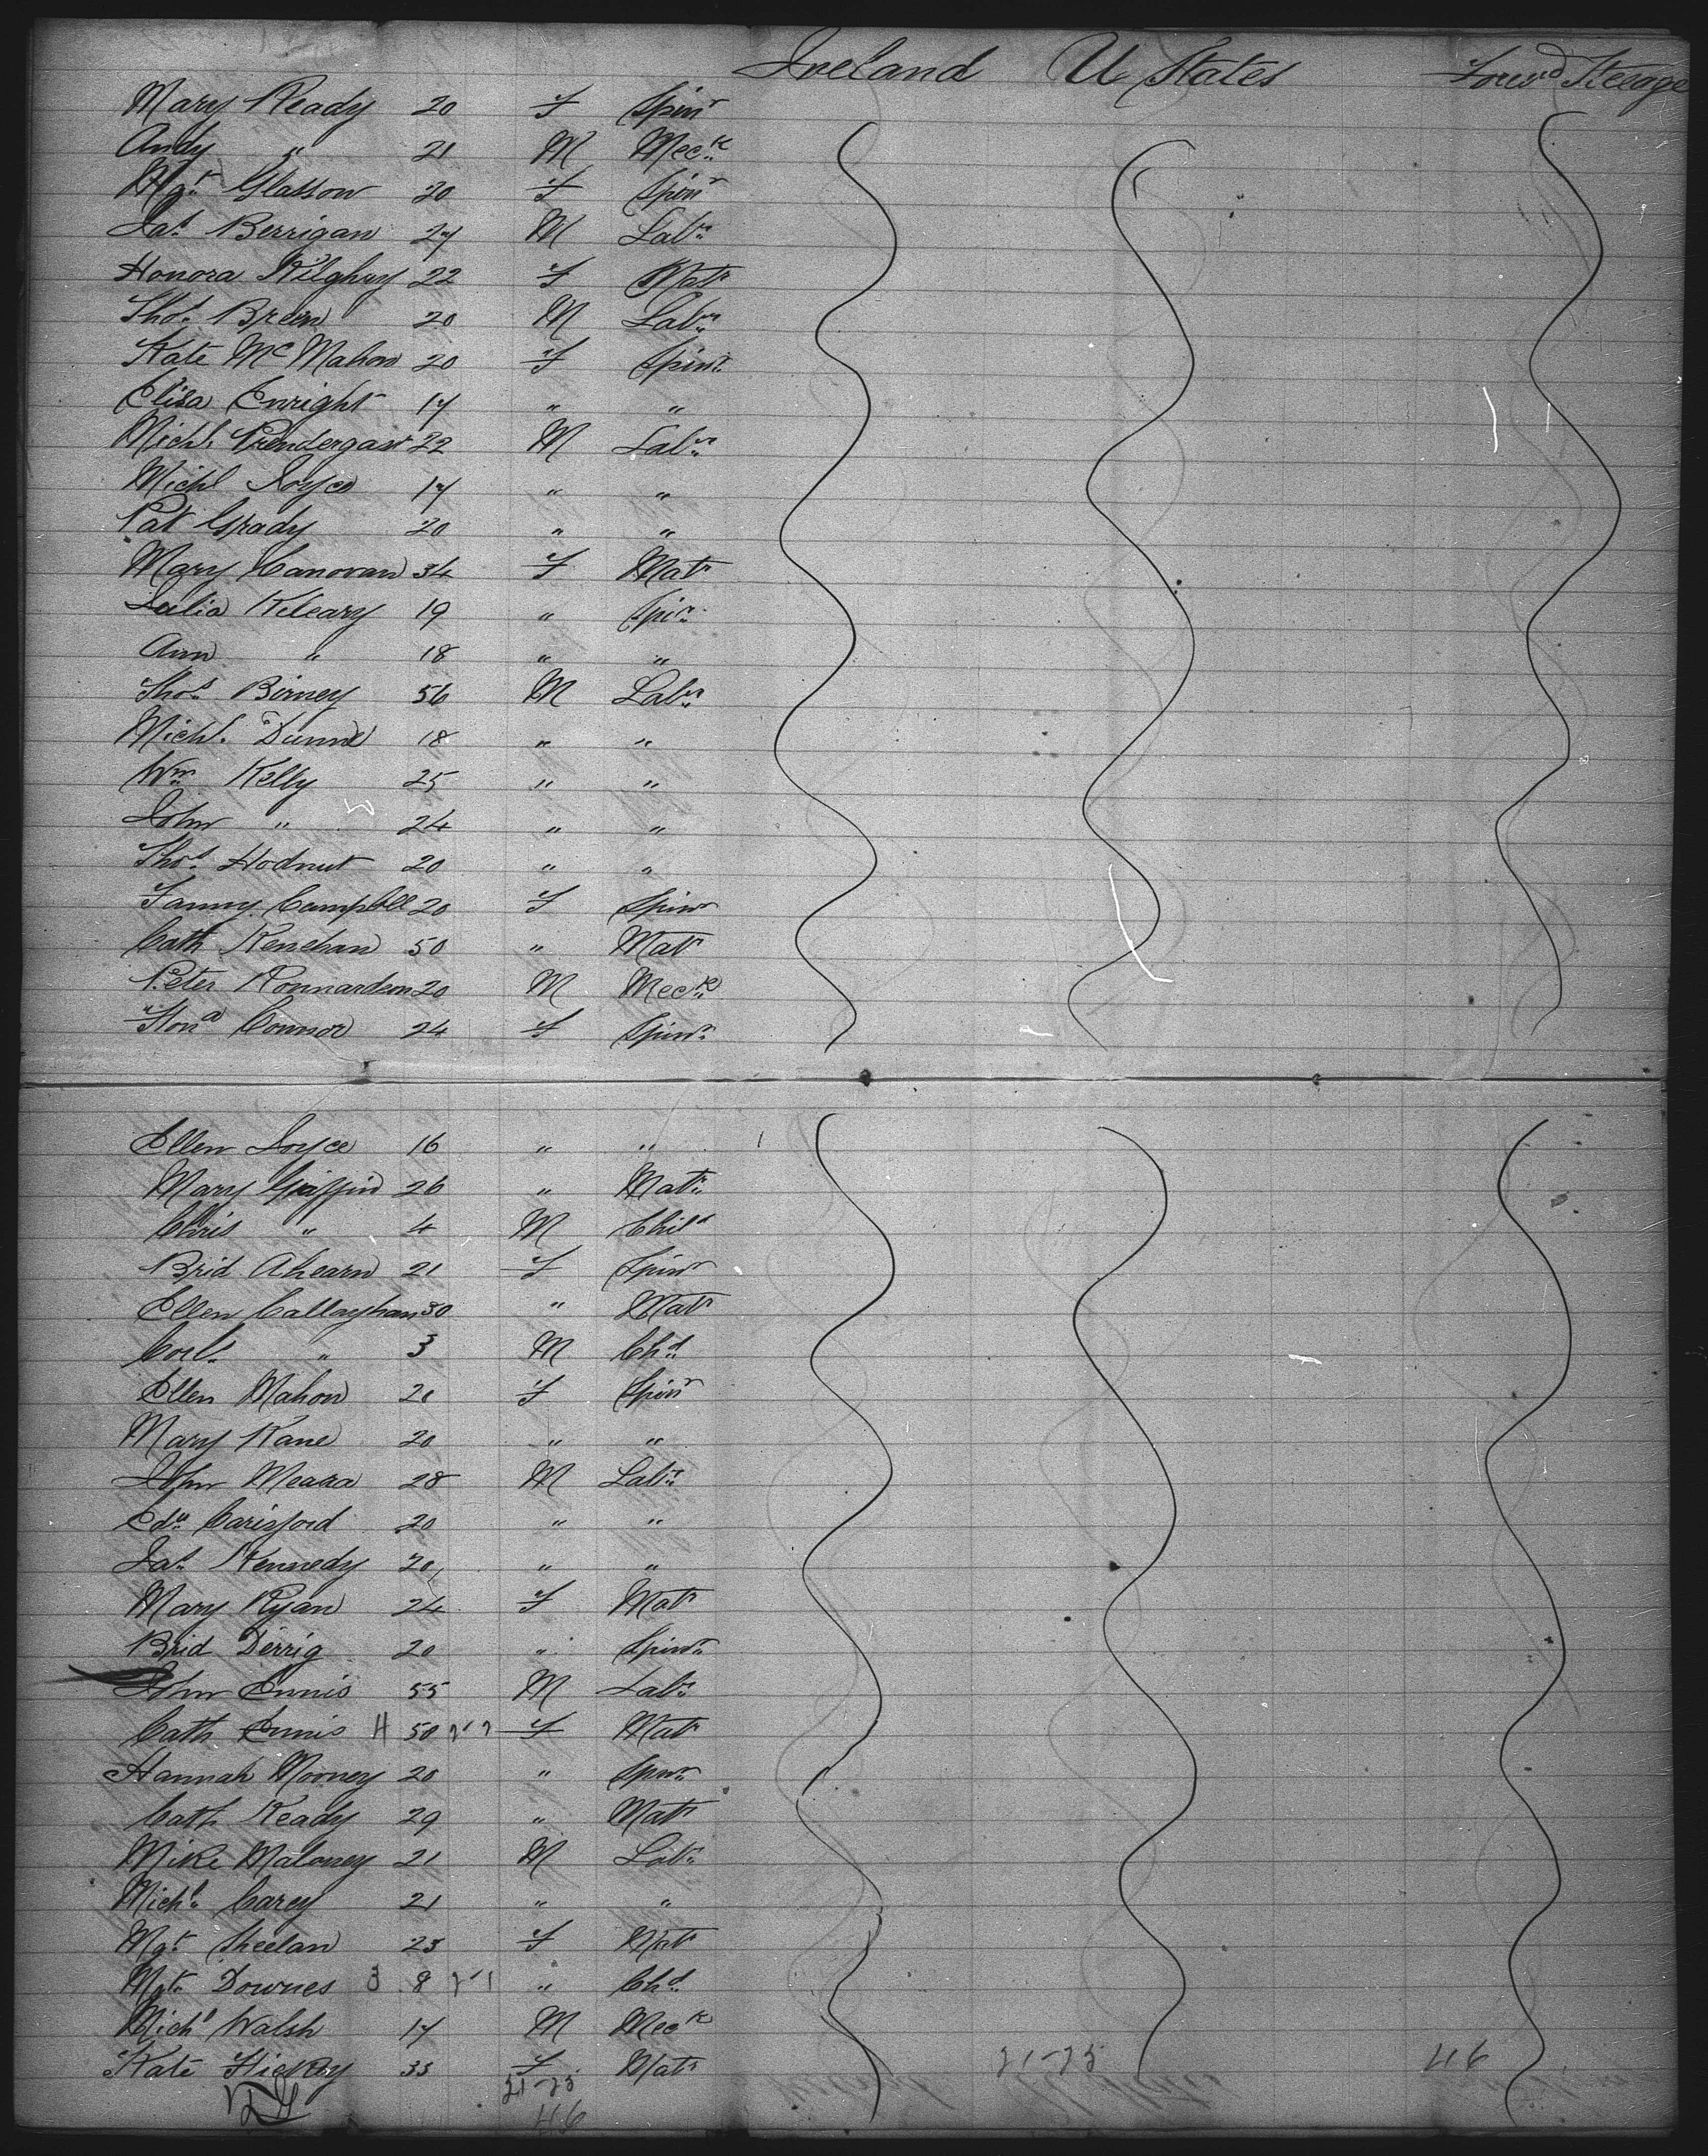 Ireland U States Forwd Steerage
Mary Ready 20 F Spinr
Andy " 21 M Meck
Mgt Glasson 20 F Spinr
Jas Berrigan 24 M Labr
Honora 22 F Matr
Thos Breen 20 M Labr
Kate McMahon 20 F Spinr
Eliza Enright 17 " "
Michl Prendergast 22 M Labr
Michl Joyce 17 " "
Pat Grady 20 " "
Mary Canovan 34 F Matr
Julia Kileary 19 " Spir
Ann " 18 " "
Thos Birney 56 M Labr
Michl Dunne 18 " "
Wm Kelly 25 " "
John " 24 " "
Thos Hodnut 20 " "
Fanny Campbell 20 F Spinr
Cath Renehan 50 " Matr
Peter 20 M Meck
Hona Connor 24 F Spinr
Ellen Joyce 16 " "
Mary Griffin 26 " Matr
Chris " 4 M Child
Brid Ahearn 21 F Spinr
Ellen Callaghan 30 " Matr
Corls " 3 M Chd
Ellen Mahon 20 F Spinr
Mary Kane 20 " "
John Meara 28 M Labr
Edw Carisford 20 " "
Jas Kennedy 20 " "
Mary Ryan 24 F Matr
Brid Derrig 20 " Spinr
John Ennis 55 M Labr
Cath Ennis H 50 F Matr
Hannah Mooney 20 " Spnr
Cath Keady 29 " Matr
Mike Maloney 21 M Labr
Michl Carey 21 " "
Mgt Sheelan 23 F Matr
Mgt Downes 3 8 " Chd
Michl Walsh 17 M Meck
Kate Hickey 33 F Matr 21-25 46
21-25
46